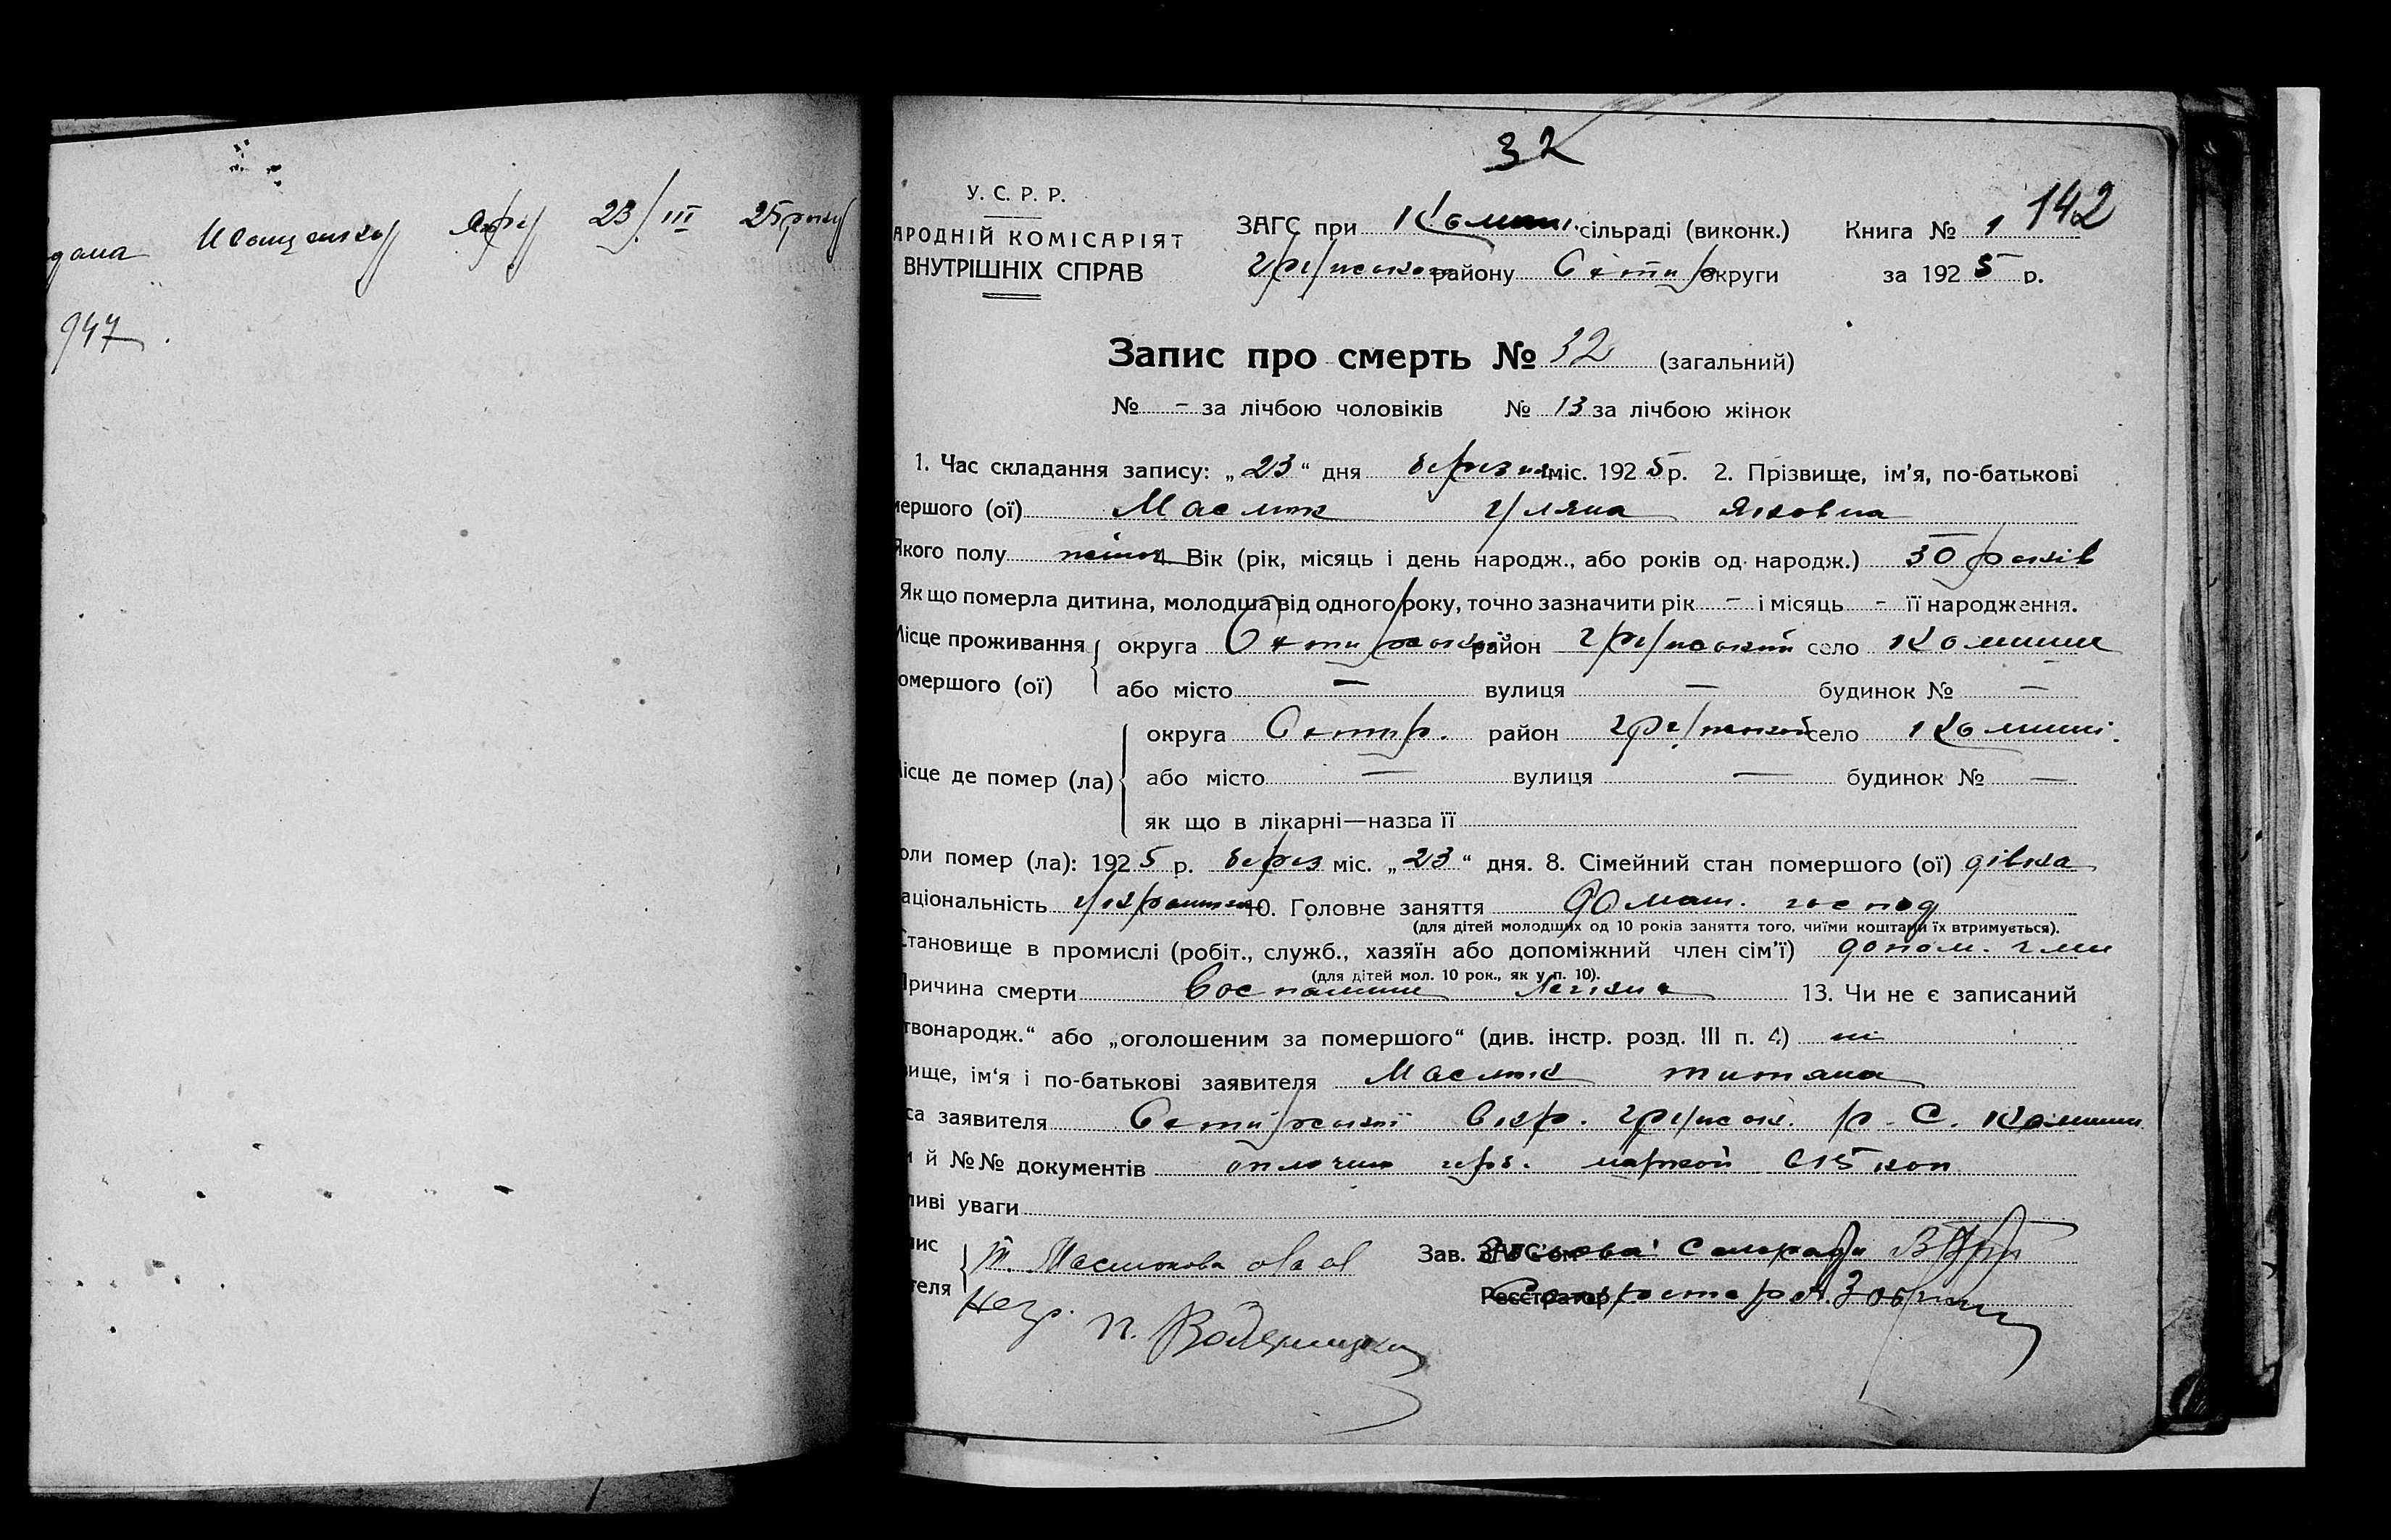 дана Иванченку 23/III 25 року
947.
32
142
У. С. Р. Р.
АРОДНІЙ КОМІСАРІЯТ
ВНУТРІШНІХ СПРАВ
ЗАГС при Комиш. сільраді (виконк.)
Грунського району Охтир округи
Книга № 1
за 1925 р.
Запис про смерть № 32 (загальний)
№ - за лічбою чоловіків № 13 за лічбою жінок
1. Час складання запису: „23“ дня березня міс. 1925 р. 2. Прізвище, ім'я, по-батькові
мершого (ої) Маслюк Уляна Яковна
Якого полу жіноч 4. Вік (рік, місяць і день народж., або років од народж.) 30 років
Як що померла дитина, молодша від одного року, точно зазначити рік - і місяць - її народження.
Місце проживання округа Охтирської район Грунський село Комиши
омершого (ої) або місто — вулиця — будинок № —
округа Охтир. район Грунський село Комиші.
ісце де помер (ла) або місто — вулиця — будинок № —
як що в лікарні—назва її
оли помер (ла): 1925 р. берез міс. „23“ дня. 8. Сімейний стан помершого (ої) дівка
аціональність українка 10. Головне заняття домаш. господ
(для дітей молодших од 10 років заняття того, чиїми коштами їх втримується).
Становище в промислі (робіт., служб., хазяїн або допоміжний член сім'ї) допом. член
(для дітей мол. 10 рок., як у п. 10).
Причина смерти Воспаление Легких 13. Чи не є записаний
твонародж.“ або „оголошеним за помершого“ (див. інстр. розд. III п. 4) ні
вище, ім'я і по-батькові заявителя Маслюк Титяна
са заявителя Охтирської Окр. Грунськ. р. С. Комиши
и й №№ документів оплочено герб. маркой 15 коп
ливі уваги
пис Т. Маслюкова
теля Негр. П.
Зав. ЗАГС'ом Голова Сельради
Реєстратор Секретарь